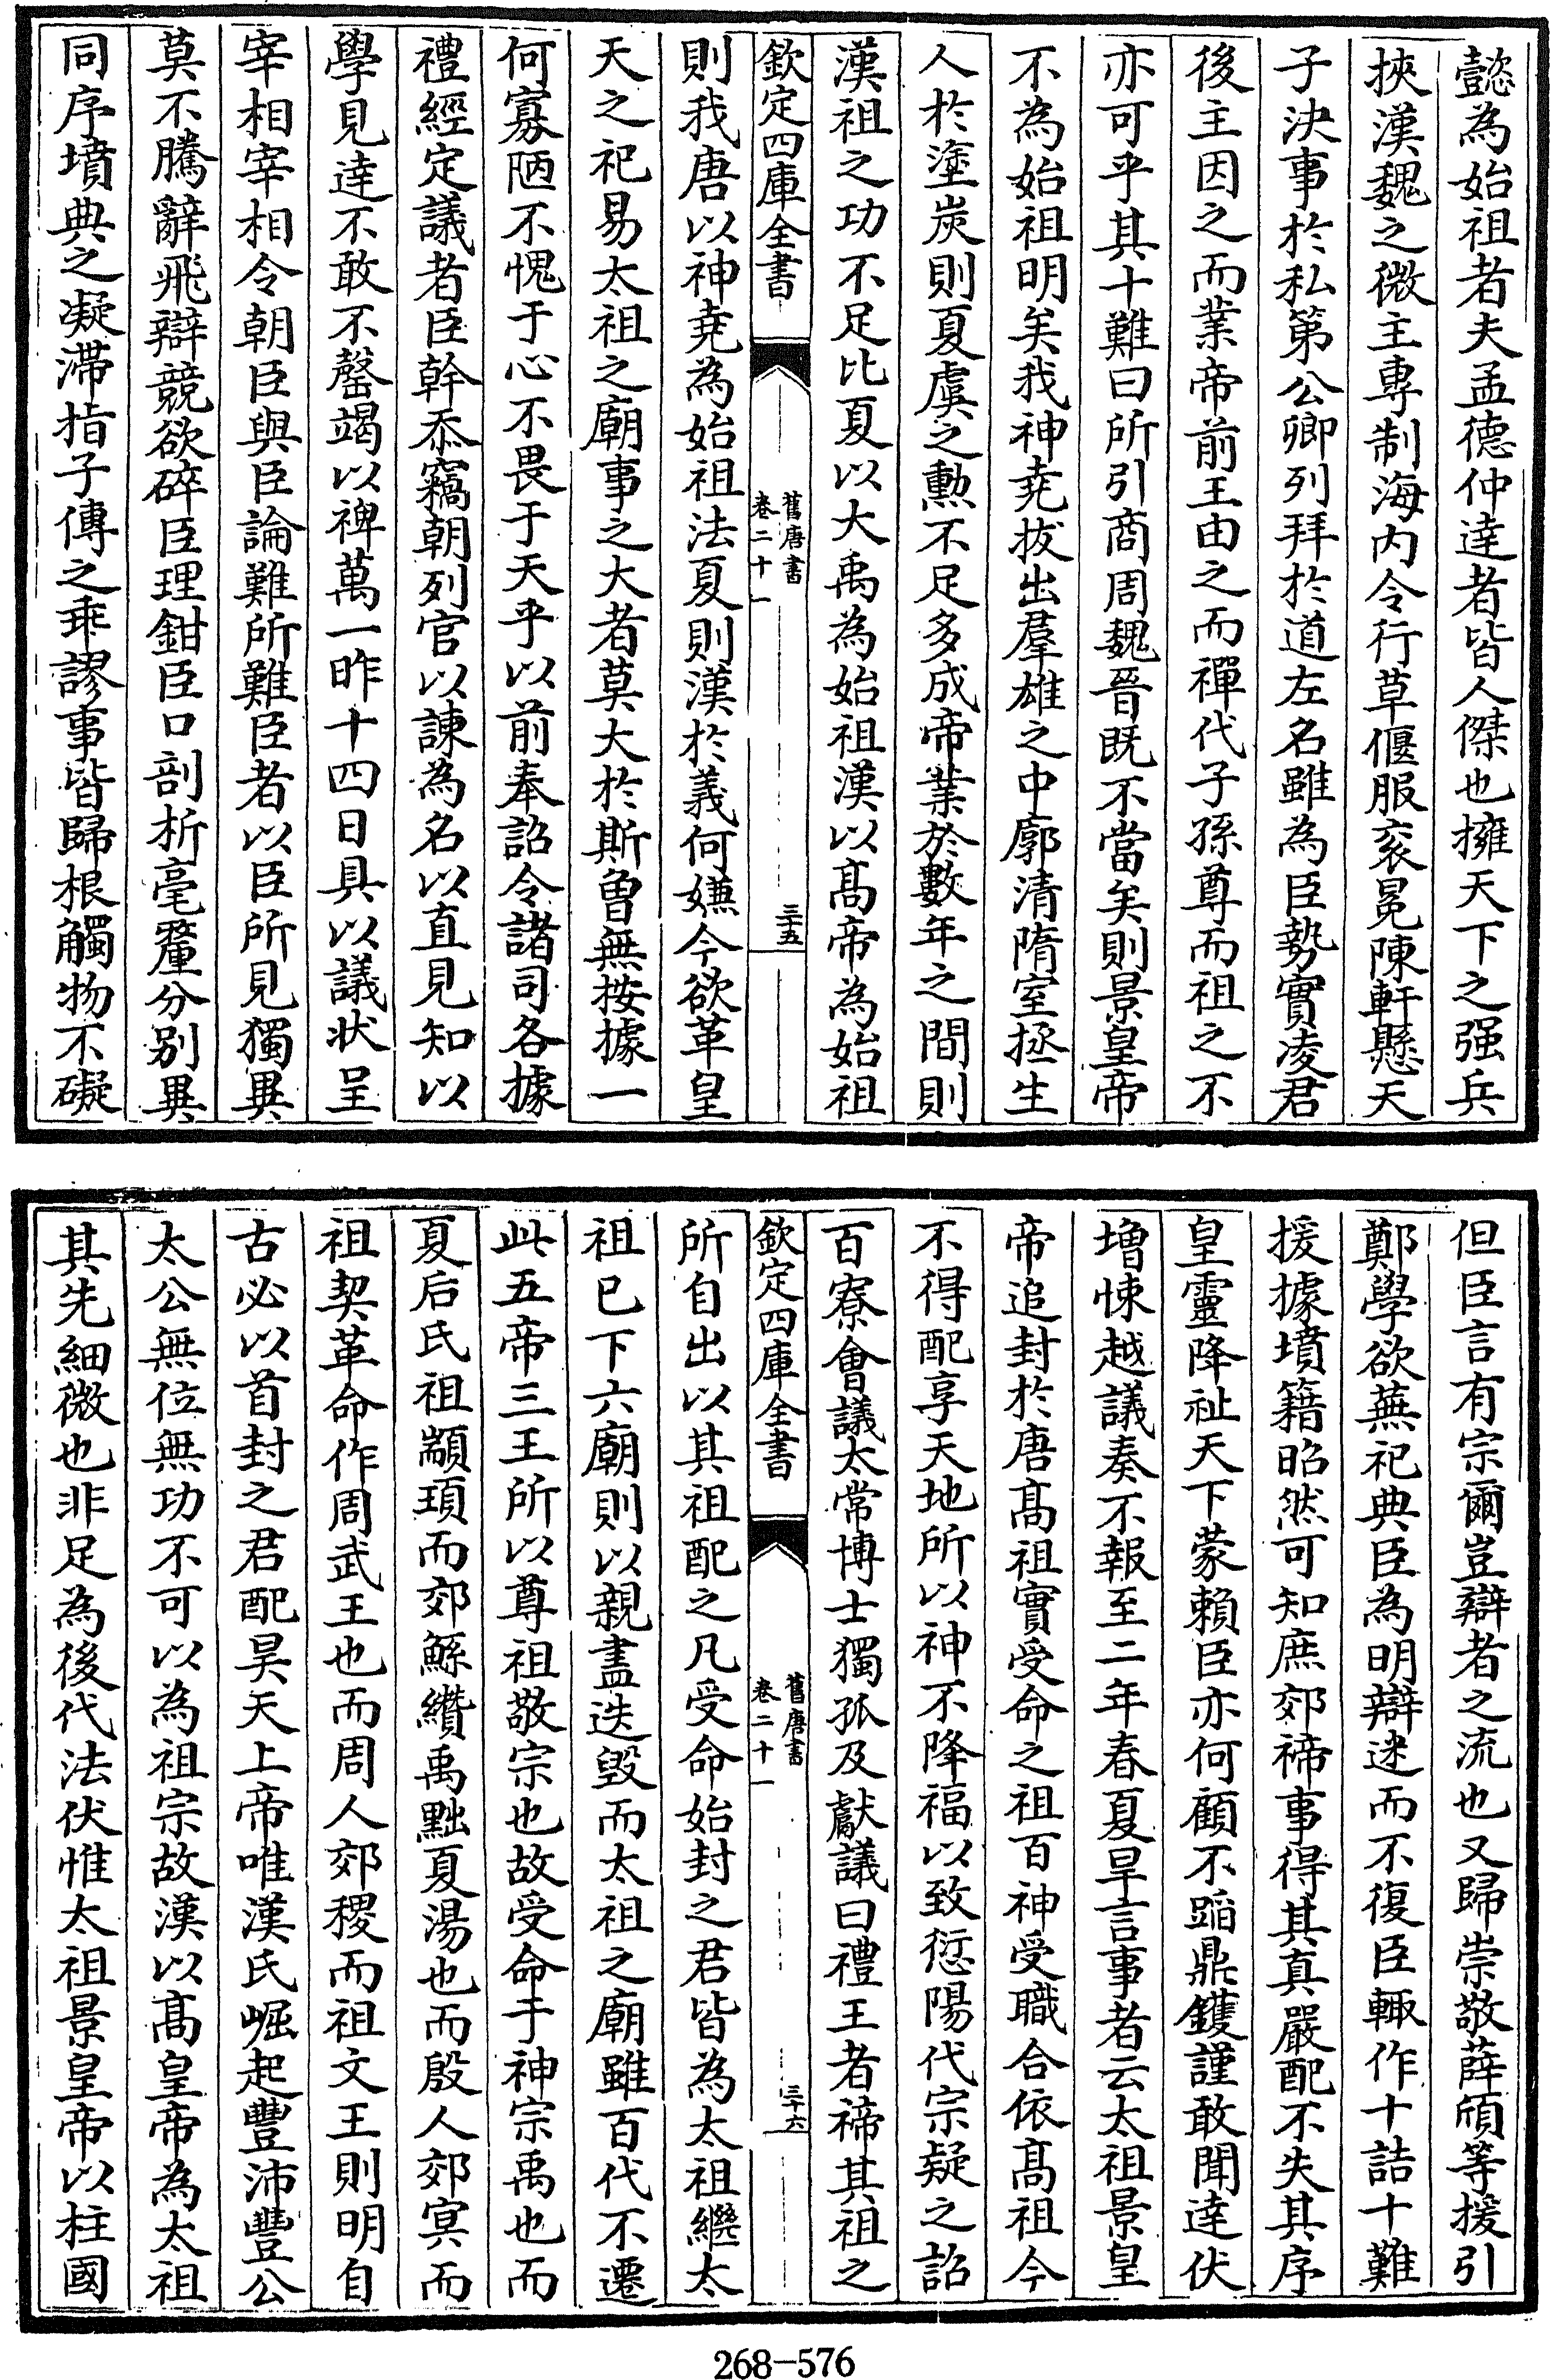 懿為始祖者夫孟德仲達者皆人傑也擁天下之强兵
挾漢魏之微主專制海内令行草偃服衮冕陳軒懸天
子決事於私第公卿列拜於道左名雖為臣勢實凌君
後主因之而業帝前王由之而禪代子孫尊而祖之不
亦可乎其十難曰所引商周魏晉既不當矣則景皇帝
不為始祖明矣我神堯拔出羣雄之中廓清隋室拯生
人於塗炭則夏虞之勲不足多成帝業於數年之間則
漢祖之功不足比夏以大禹為始祖漢以髙帝為始祖
欽定四庫全書
舊唐書
卷二十一
三十五
則我唐以神堯為始祖法夏則漢於義何嫌今欲革皇
天之祀易太祖之廟事之大者莫大於斯曾無按據一
何寡陋不愧于心不畏于天乎以前奉詔令諸司各據
禮經定議者臣幹忝竊朝列官以諫為名以直見知以
學見達不敢不罄竭以裨萬一昨十四日具以議狀呈
宰相宰相令朝臣與臣論難所難臣者以臣所見獨異
莫不騰辭飛辯競欲碎臣理鉗臣口剖析毫釐分别異
同序墳典之凝滯指子傳之乖謬事皆歸根觸物不礙
但臣言有宗爾豈辯者之流也又歸崇敬薛頎等援引
鄭學欲蕪祀典臣為明辯迷而不復臣輙作十詰十難
援據墳籍昭然可知庶郊禘事得其真嚴配不失其序
皇靈降祉天下蒙賴臣亦何顧不蹈鼎鑊謹敢聞達伏
増悚越議奏不報至二年春夏旱言事者云太祖景皇
帝追封於唐髙祖實受命之祖百神受職合依髙祖今
不得配享天地所以神不降福以致愆陽代宗疑之詔
百寮會議太常博士獨孤及獻議曰禮王者禘其祖之
欽定四庫全書
舊唐書
卷二十一
三十六
所自出以其祖配之凡受命始封之君皆為太祖繼太
祖已下六廟則以親盡迭毁而太祖之廟雖百代不遷
此五帝三王所以尊祖敬宗也故受命于神宗禹也而
夏后氏祖顓頊而郊鯀纘禹黜夏湯也而殷人郊冥而
祖契革命作周武王也而周人郊稷而祖文王則明自
古必以首封之君配昊天上帝唯漢氏崛起豐沛豐公
太公無位無功不可以為祖宗故漢以髙皇帝為太祖
其先細微也非足為後代法伏惟太祖景皇帝以柱國
268-576